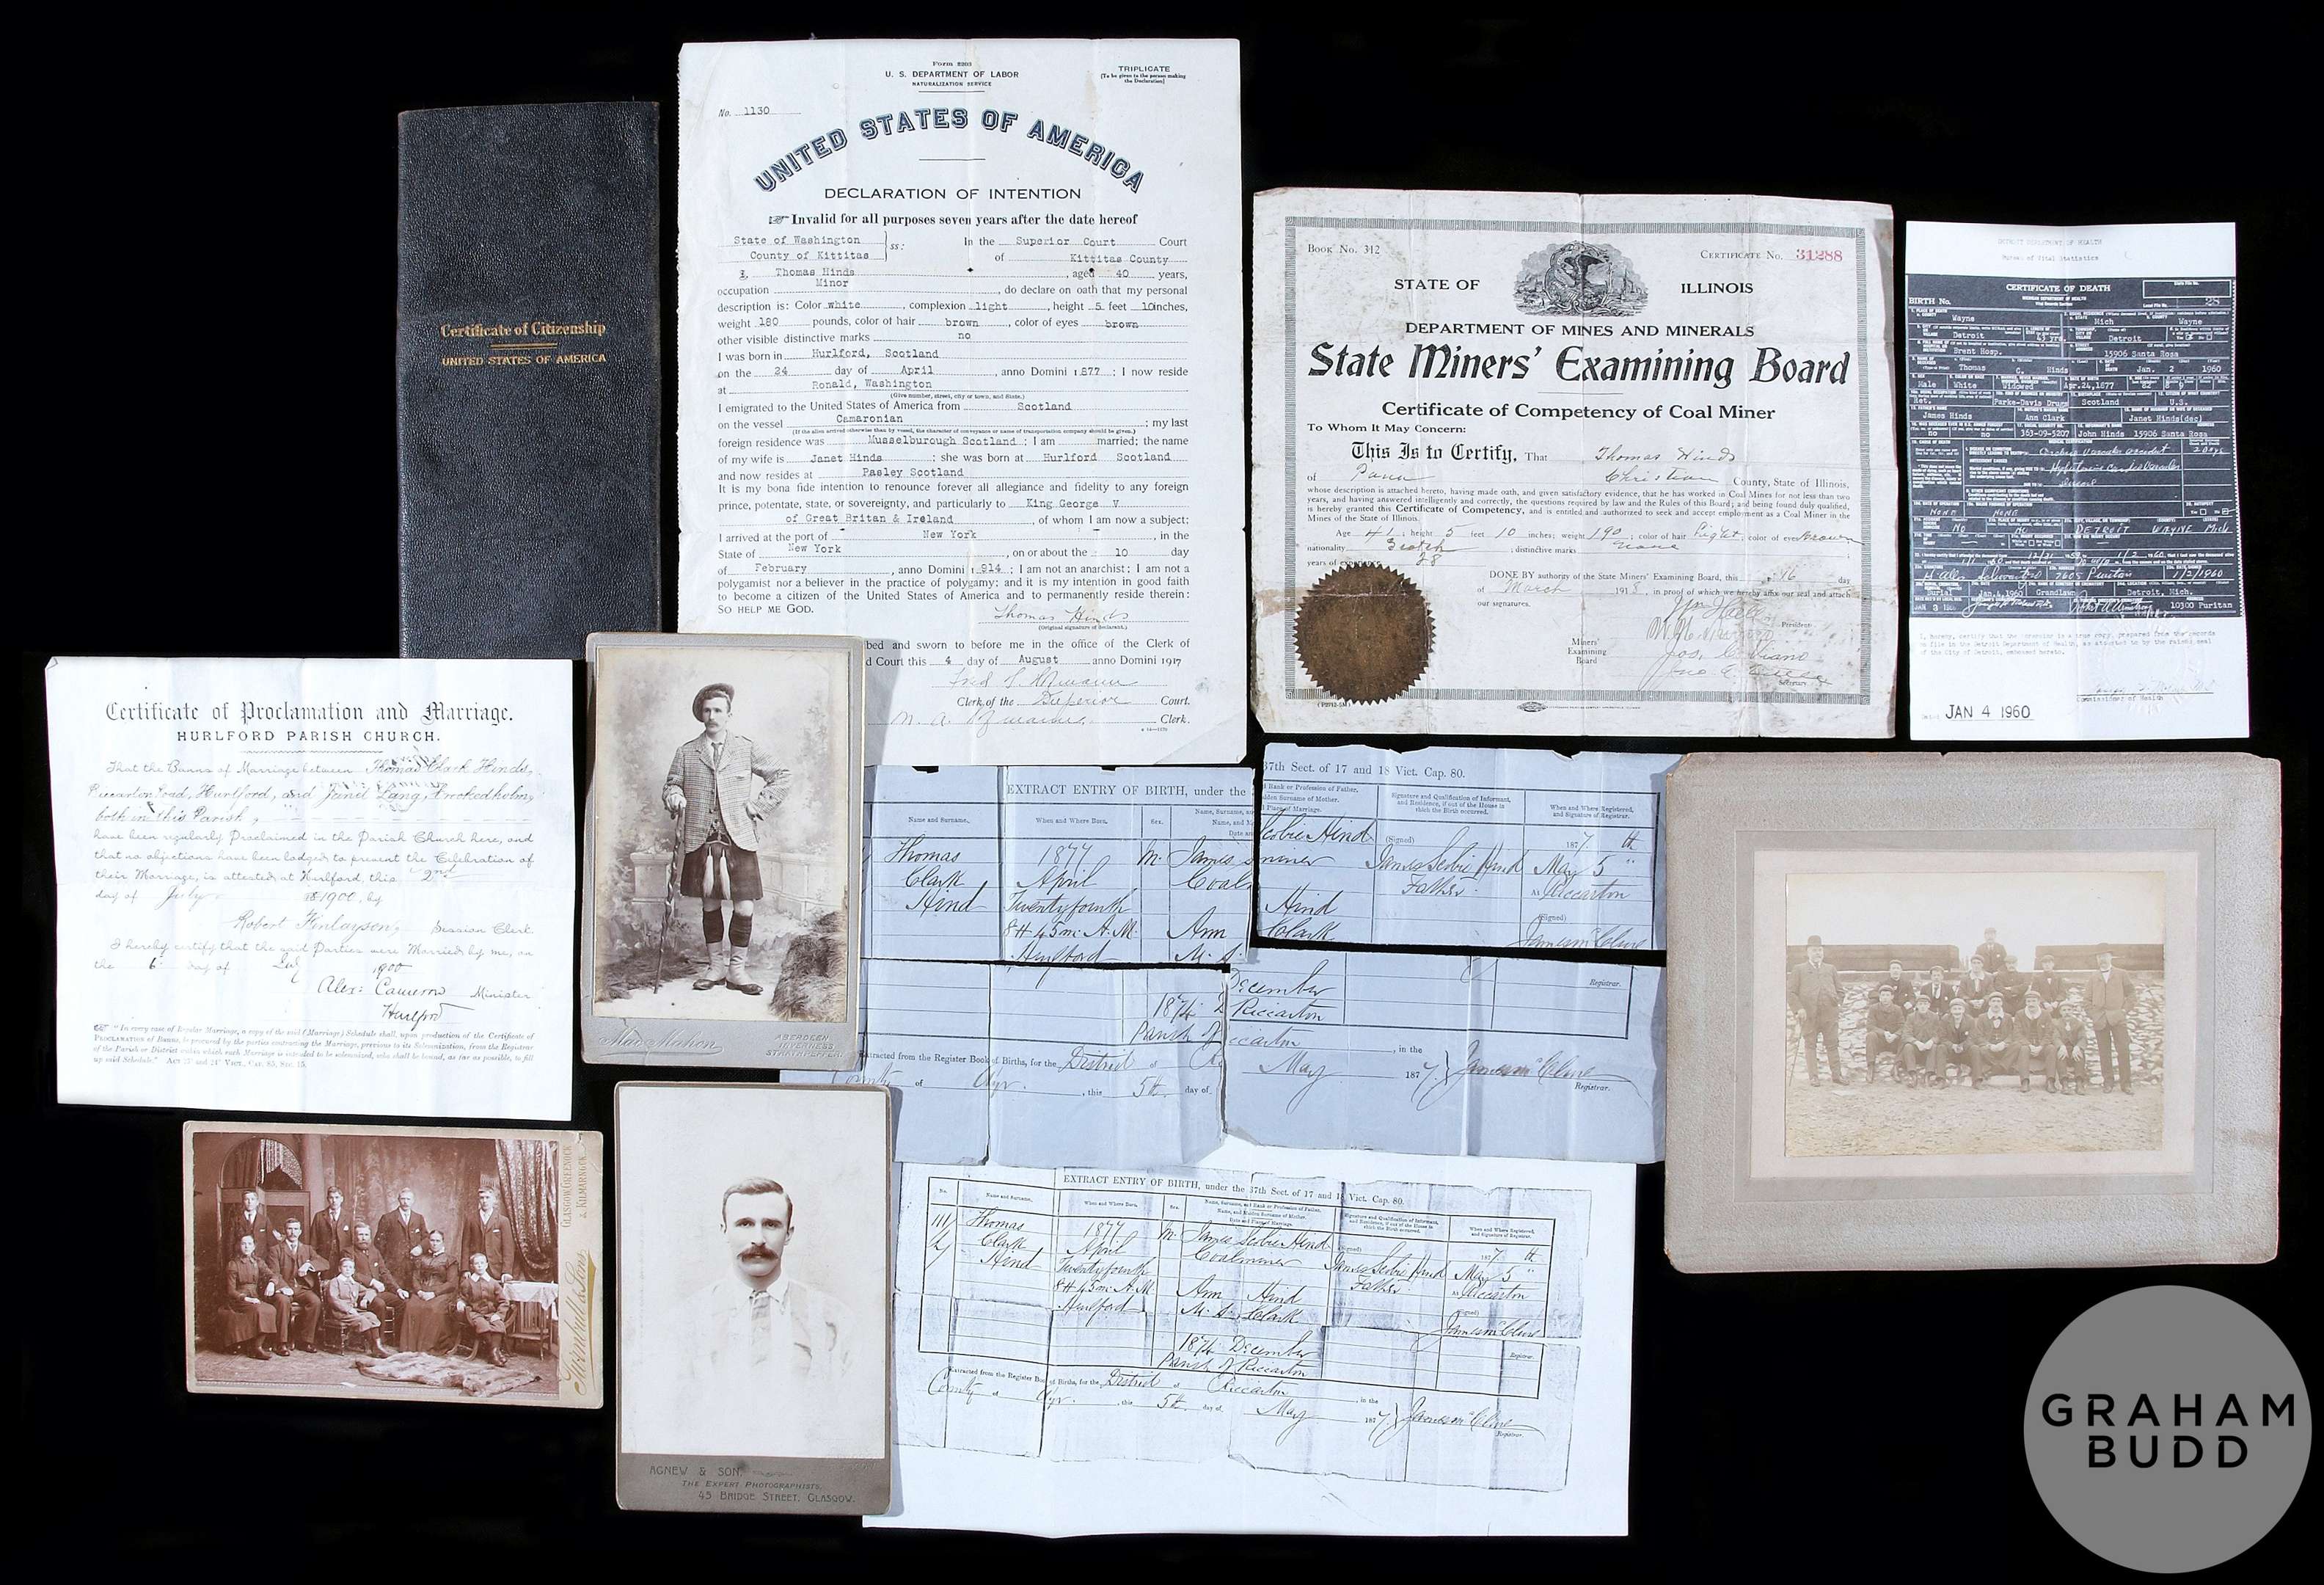 Certificate of Citizenship
UNITED STATES OF AMERICA
Form 2203
U. S. DEPARTMENT OF LABOR
NATURALIZATION SERVICE
TRIPLICATE
[To be given to the person making
the Declaration]
No. 1130
UNITED STATES OF AMERICA
DECLARATION OF INTENTION
Invalid for all purposes seven years after the date hereof
State of Washington
County of Kittitas
ss:
In the Superior Court Court
of Kittitas County
I, Thomas Hinds, aged 40 years,
occupation Minor, do declare on oath that my personal
description is: Color white, complexion light, height 5 feet 10 inches,
weight 180 pounds, color of hair brown, color of eyes brown
other visible distinctive marks no
I was born in Hurlford, Scotland
on the 24 day of April, anno Domini 1877; I now reside
at Ronald, Washington
(Give number, street, city or town, and State.)
I emigrated to the United States of America from Scotland
on the vessel Camaronian; my last
(If the alien arrived otherwise than by vessel, the character of conveyance or name of transportation company should be given.)
foreign residence was Musselbourgh Scotland; I am married; the name
of my wife is Janet Hinds; she was born at Hurlford Scotland
and now resides at Pasley Scotland
It is my bona fide intention to renounce forever all allegiance and fidelity to any foreign
prince, potentate, state, or sovereignty, and particularly to King George V
of Great Britan & Ireland, of whom I am now a subject;
I arrived at the port of New York, in the
State of New York, on or about the 10 day
of February, anno Domini 1914; I am not an anarchist; I am not a
polygamist nor a believer in the practice of polygamy; and it is my intention in good faith
to become a citizen of the United States of America and to permanently reside therein:
SO HELP ME GOD.
Thomas Hinds
(Original signature of declarant.)
bed and sworn to before me in the office of the Clerk of
d Court this 4 day of August anno Domini 1917
Clerk of the Superior Court.
Clerk.
Book No. 312
Certificate No. 31288
STATE OF ILLINOIS
DEPARTMENT OF MINES AND MINERALS
State Miners' Examining Board
Certificate of Competency of Coal Miner
To Whom It May Concern:
This Is to Certify, That Thomas Hinds
of Pana Christian County, State of Illinois,
whose description is attached hereto, having made oath, and given satisfactory evidence, that he has worked in Coal Mines for not less than two
years, and having answered intelligently and correctly, the questions required by law and the Rules of this Board; and being found duly qualified,
is hereby granted this Certificate of Competency, and is entitled and authorized to seek and accept employment as a Coal Miner in the
Mines of the State of Illinois.
Age 41; height 5 feet 10 inches; weight 190; color of hair Light; color of eyes Brown
nationality Scotch; distinctive marks None
years of experience 28
DONE BY authority of the State Miners' Examining Board, this day
of March 1918, in proof of which we hereby affix our seal and attach
our signatures.
President
Miners'
Examining
Board
Secretary
DETROIT DEPARTMENT OF HEALTH
Bureau of Vital Statistics
CERTIFICATE OF DEATH
MICHIGAN DEPARTMENT OF HEALTH
BIRTH No.
28
Wayne Mich Wayne
Detroit 43 yrs. Detroit
Brent Hosp. 15906 Santa Rosa
Thomas C. Hinds Jan. 2 1960
Male White Widowed Apr.24,1877 82
Ret. Parke-Davis Drugs Scotland U.S.
James Hinds Ann Clark Janet Hinds(dec)
no no 363-09-5207 John Hinds 15906 Santa Rosa
NONE NONE
No DETROIT WAYNE Mich
7605 Puritan 1/2/1960
Burial Jan.4,1960 Grandlawn Detroit, Mich.
10300 Puritan
I, hereby, certify that the foregoing is a true copy prepared from the records
on file in the Detroit Department of Health, as attested to by the raised seal
of the City of Detroit, embossed hereto.
Commissioner of Health
JAN 4 1960
Certificate of Proclamation and Marriage.
HURLFORD PARISH CHURCH.
That the Banns of Marriage between Thomas Clark Hinds,
Riccarton Road, Hurlford, and Janet Lang, Crookedholm,
both in this Parish,
have been regularly Proclaimed in the Parish Church here, and
that no objections have been lodged to prevent the Celebration of
their Marriage, is attested at Hurlford, this 2nd
day of July 1900, by
Robert Finlayson, Session Clerk.
I hereby certify that the said Parties were Married by me, on
the 6 day of July 1900
Alex: Cameron Minister
Hurlford
"In every case of Regular Marriage, a copy of the said (Marriage) Schedule shall, upon production of the Certificate of
Proclamation of Banns, be procured by the parties contracting the Marriage, previous to its Solemnization, from the Registrar
of the Parish or District within which such Marriage is intended to be solemnized, who shall be bound, as far as possible, to fill
up said Schedule."
MacMahon
ABERDEEN
INVERNESS
STRATHPEFFER
EXTRACT ENTRY OF BIRTH, under the
37th Sect. of 17 and 18 Vict. Cap. 80.
Name and Surname.
When and Where Born.
Sex.
Signature and Qualification of Informant,
and Residence, if out of the House in
which the Birth occurred.
When and Where Registered,
and Signature of Registrar.
Thomas
Clark
Hind
1877
April
Twentyfourth
8H 45m A.M.
Hurlford
M.
James
Coal
Ann
M. S.
Scobie Hind
miner
Hind
Clark
(Signed)
James Scobie Hind
Father
1877
May 5th
At Riccarton
(Signed)
1874 December
Parish of Riccarton
Registrar.
Extracted from the Register Book of Births, for the District of Riccarton, in the
County of Ayr, this 5th day of May 1877.
Registrar.
GLASGOW, GREENOCK
& KILMARNOCK
AGNEW & SON,
THE EXPERT PHOTOGRAPHISTS,
45 BRIDGE STREET, GLASGOW.
EXTRACT ENTRY OF BIRTH, under the 37th Sect. of 17 and 18 Vict. Cap. 80.
No.
Name and Surname.
When and Where Born.
Sex.
Name, Surname, and Rank or Profession of Father.
Name, and Maiden Surname of Mother.
Date and Place of Marriage.
Signature and Qualification of Informant,
and Residence, if out of the House in
which the Birth occurred.
When and Where Registered,
and Signature of Registrar.
111
Thomas
Clark
Hind
1877
April
Twentyfourth
8H 45m A.M.
Hurlford
M.
James Scobie Hind
Coalminer
Ann Hind
M. S. Clark
1874 December
Parish of Riccarton
(Signed)
James Scobie Hind
Father
1877
May 5th
At Riccarton
(Signed)
Registrar
Extracted from the Register Book of Births, for the District of Riccarton, in the
County of Ayr, this 5th day of May 1877.
Registrar.
GRAHAM
BUDD